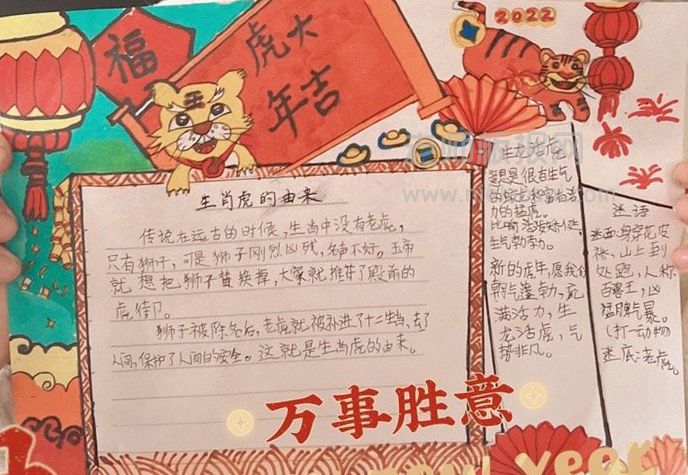 福
虎大
年吉
2022
生肖虎的由来
传说在远古的时候,生肖中没有老虎,
只有狮子,可是狮子刚烈凶残,名声不好。玉帝
就想把狮子替换掉,大家就推荐了殿前的
虎
狮子被除名后,老虎就被补进了十二生肖,去了
人间,保护了人间的安全。这就是生肖虎的由来。
生龙活虎
是很有生气
的
力的猛虎。
比喻活泼矫健,
生气勃勃。
新的虎年,愿我们
朝气蓬勃,充
满活力,生
龙活虎,气
势非凡。
迷语
迷面:身穿花皮
袄,山上到
处跑,人称
百兽王,凶
猛脾气暴。
(打一动物
迷底:老虎。
万事胜意
year